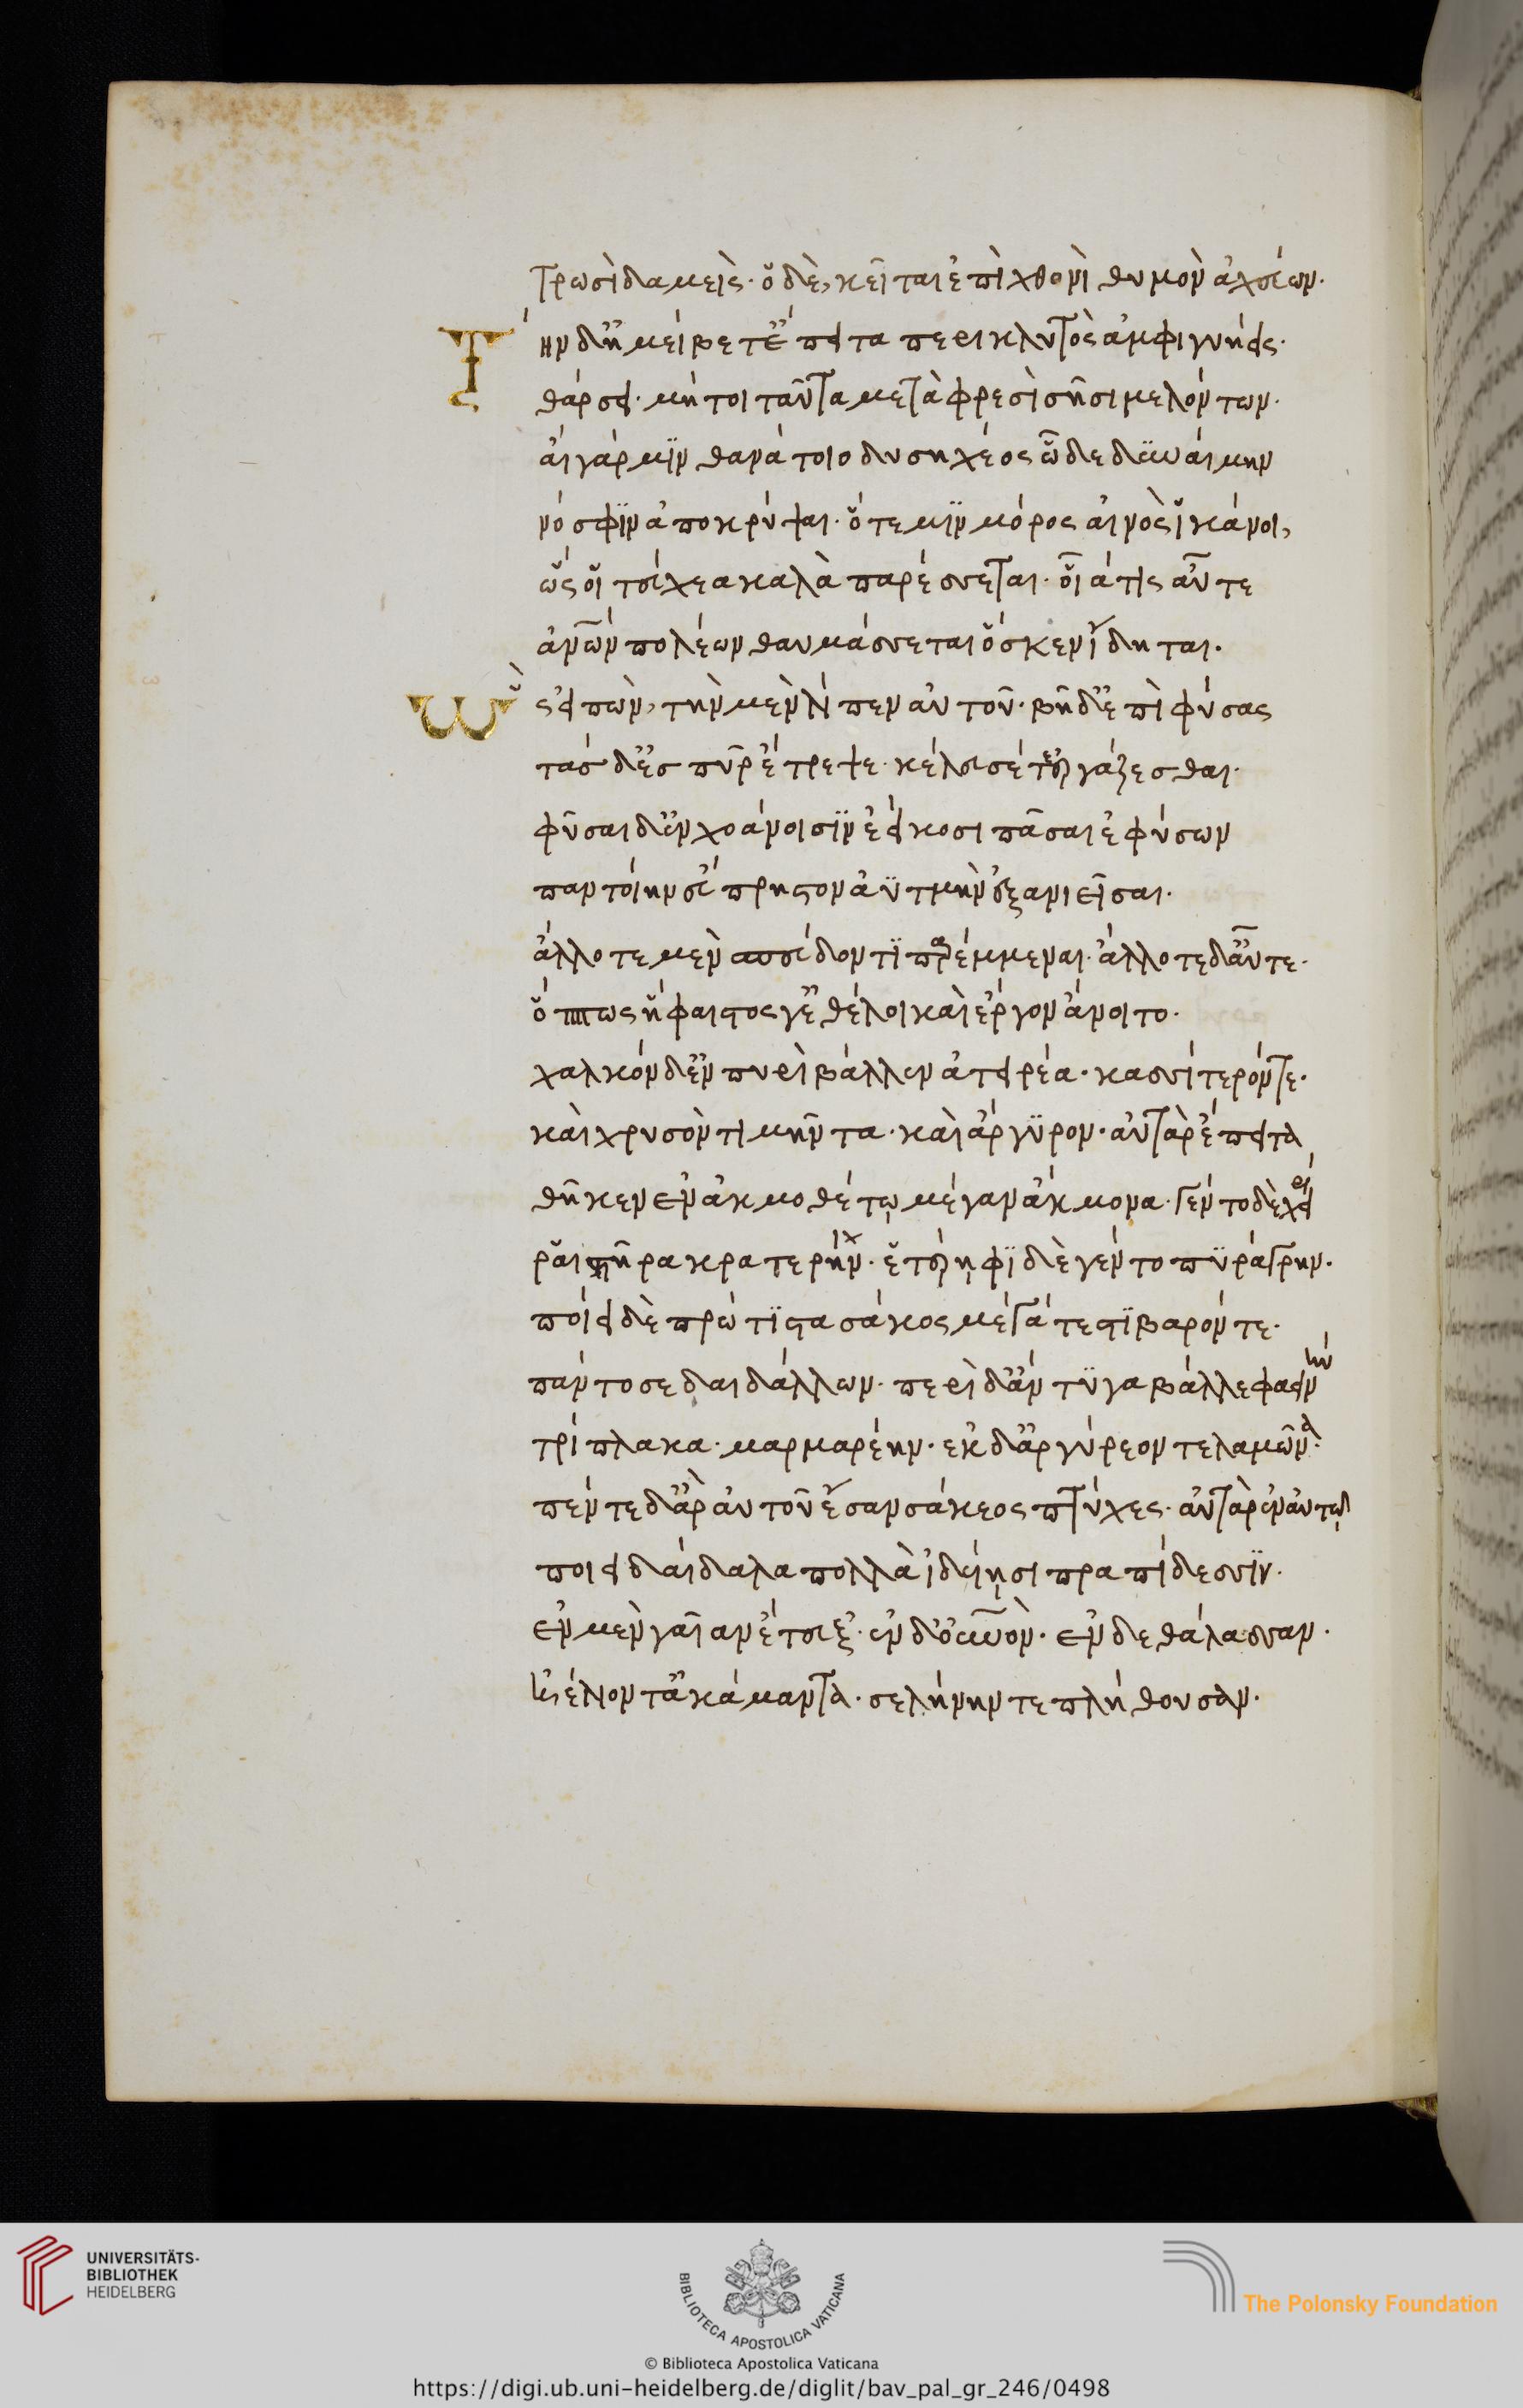 Τρωσὶ δαμεὶς· ὃ δὲ, κεῖται ἐπὶ χθονὶ θυμὸν ἀχεύων·
Τὴν δ' ἠμείβετ' ἔπειτα περικλυτὸς ἀμφιγυήεις·
θάρσει· μή τοι ταῦτα μετὰ φρεσὶ σῇσι μελόντων·
αἲ γάρ μϊν θανάτοιο δυσηχέος ὧδε δϋναίμην
νόσφϊν ἀποκρύψαι· ὅτε μϊν μόρος αἰνὸς ἱκάνοι,
ὥς οἱ τεύχεα καλὰ παρέσσεται· οἷά τις αὖτε
ἀνθρώπων πολέων θαυμάσσεται ὅς κεν ἴδηται.
Ὣς εἰπὼν, τὴν μὲν λίπεν αὐτοῦ· βῆ δ' ἐπὶ φύσας
τὰς δ' ἐς πῦρ ἔτρεψε· κέλευσέ τε ἐργάζεσθαι·
φῦσαι δ' ἐν χοάνοισϊν ἐείκοσι πᾶσαι ἐφύσων
παντοίην εὔπρηστον ἀϋτμὴν ἐξανιεῖσαι.
ἄλλοτε μὲν σπεύδοντϊ παρέμμεναι· ἄλλοτε δ' αὖτε·
ὅππως ἥφαιστός γ' ἐθέλοι καὶ ἔργον ἄνοιτο.
χαλκὸν δ' ἐν πυρὶ βάλλεν ἀτειρέα· κασσίτερόν τε·
καὶ χρυσὸν τιμῆντα· καὶ ἄργϋρον· αὐτὰρ ἔπειτα
θῆκεν ἐν ἀκμοθέτῳ μέγαν ἄκμονα· γέντο δὲ χειρὶ
ῥαιστῆρα κρατερήν· ἑτέρηφϊ δὲ γέντο πϋράγρην.
ποίει δὲ πρώτϊστα σάκος μέγά τε στϊβαρόν τε·
πάντοσε δαιδάλλων· περὶ δ' ἄντϋγα βάλλε φαεινήν
τρίπλακα· μαρμαρέην· ἐκ δ' ἀργύρεον τελαμῶνα·
πέντε δ' ἂρ αὐτοῦ ἔσαν σάκεος πτύχες· αὐτὰρ ἐν αὐτῷ
ποίει δαίδαλα πολλὰ ἰδυίῃσι πραπίδεσσϊν·
ἐν μὲν γαῖαν ἔτευξ'· ἐν δ' οὐρανὸν· ἐν δὲ θάλασσαν·
ἠέλιόν τ' ἀκάμαντα· σελήνην τε πλήθουσαν·
UNIVERSITÄTS-
BIBLIOTHEK
HEIDELBERG
BIBLIOTECA APOSTOLICA VATICANA
The Polonsky Foundation
© Biblioteca Apostolica Vaticana
https://digi.ub.uni-heidelberg.de/diglit/bav_pal_gr_246/0498